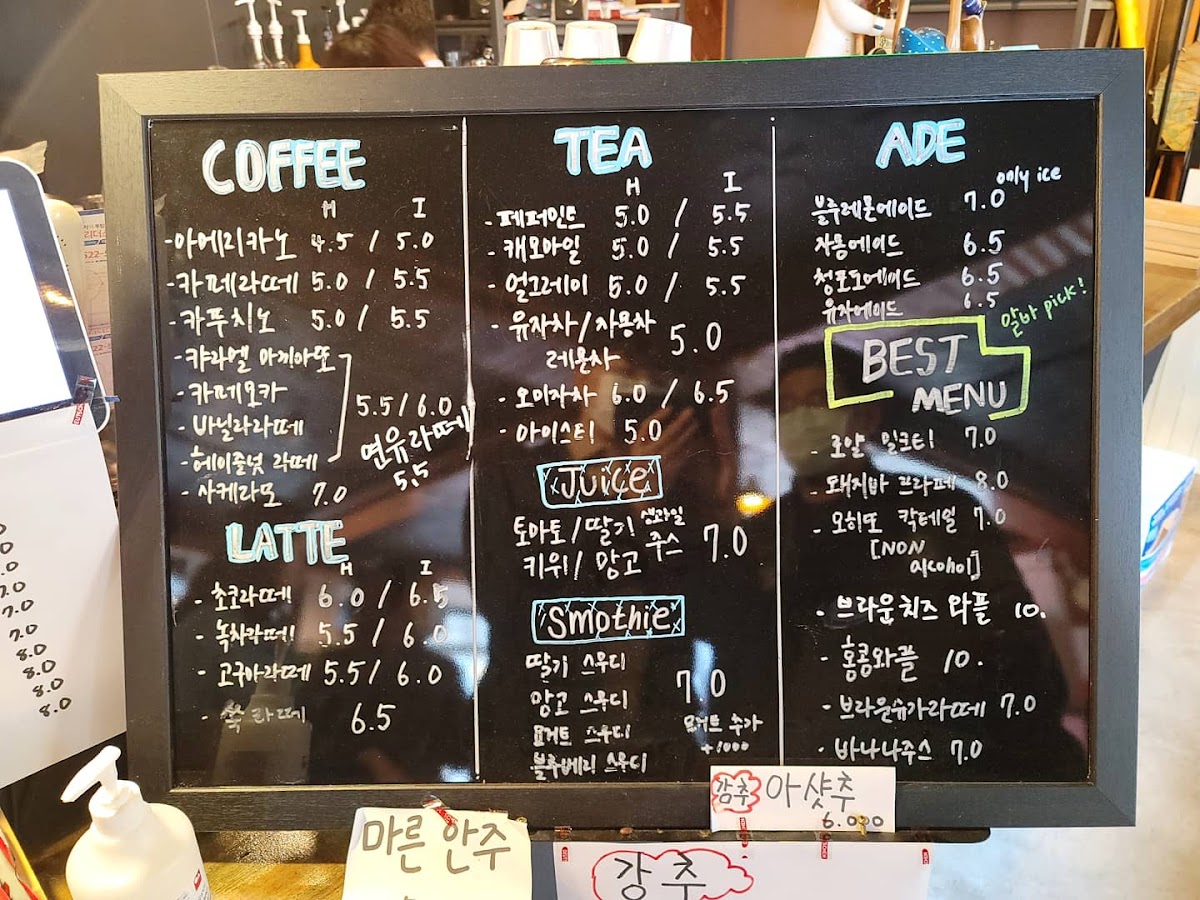 COFFEE
H I
-아메리카노 4.5 / 5.0
-카페라떼 5.0 / 5.5
-카푸치노 5.0 / 5.5
-캬라멜 마끼아또
-카페모카
-바닐라라떼
-헤이즐넛 라떼
5.5/6.0
연유라떼
5.5
-사케라또 7.0
LATTE
H I
- 초코라떼 6.0 / 6.5
- 녹차라떼 5.5 / 6.0
- 고구마라떼 5.5/ 6.0
- 쑥 라떼 6.5
TEA
H I
-페퍼민트 5.0 / 5.5
-캐모마일 5.0 / 5.5
-얼그레이 5.0 / 5.5
-유자차/자몽차 5.0
레몬차
-오미자차 6.0 / 6.5
-아이스티 5.0
Juice
토마토/딸기 생과일
키위/망고 주스 7.0
Smothie
딸기 스무디
망고 스무디 7.0
요거트 스무디 요거트 추가
블루베리 스무디 +1000
ADE
only ice
블루레몬에이드 7.0
자몽에이드 6.5
청포도에이드 6.5
유자에이드 6.5
알바 pick!
BEST
MENU
-로얄 밀크티 7.0
-돼지바 프라페 8.0
-모히또 칵테일 7.0
[NON
alcohol]
-브라운치즈 와플 10.
-홍콩와플 10.
-브라운슈가라떼 7.0
-바나나주스 7.0
강추 아샷추
6.000
마른 안주
강추
7.0
7.0
8.0
8.0
8.0
8.0